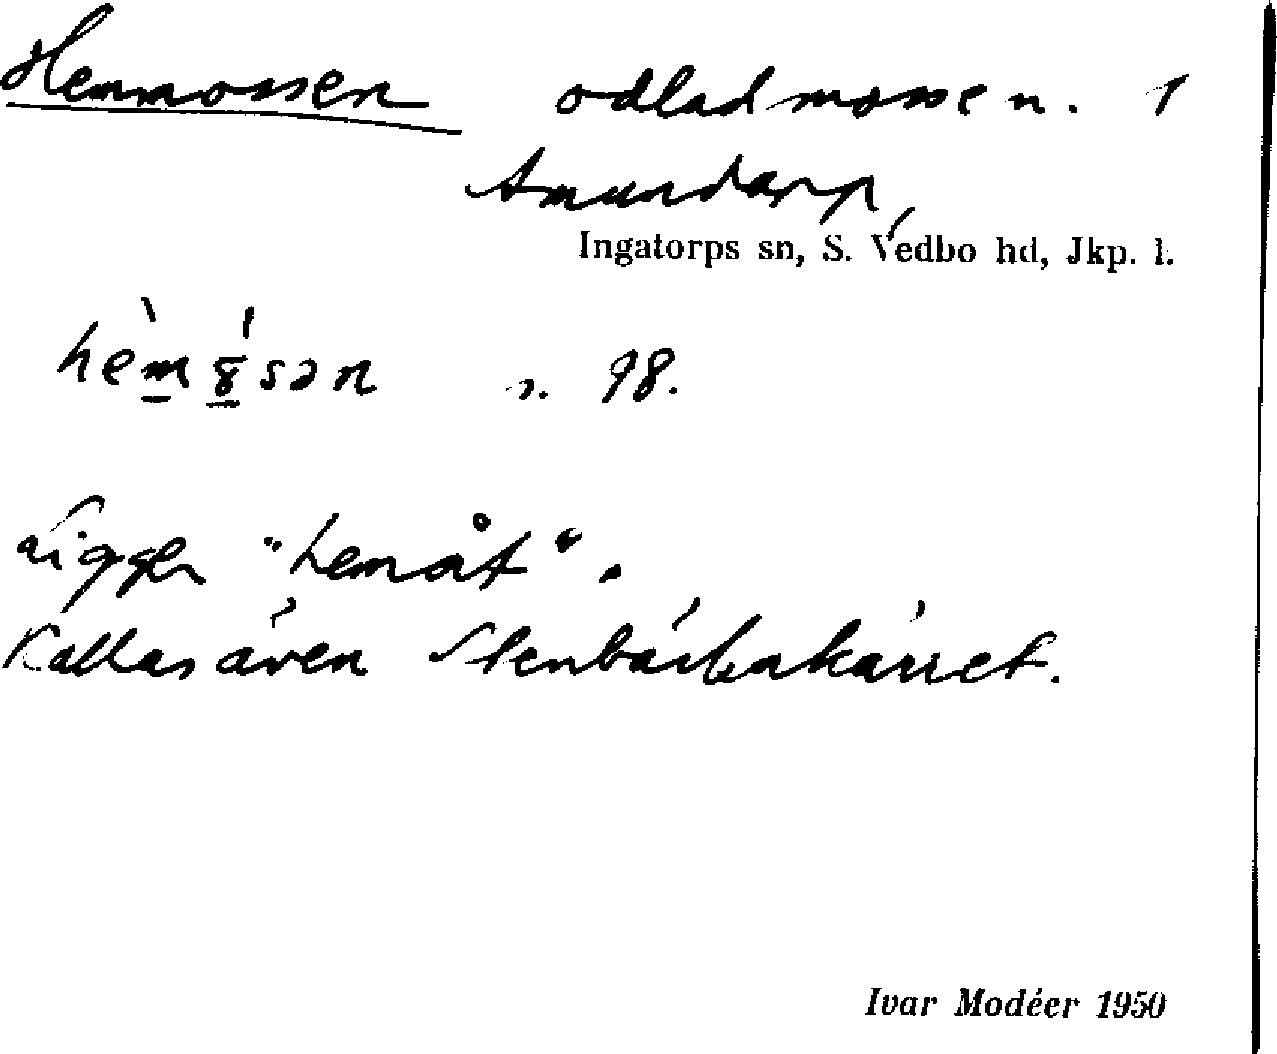 Hemmossen odlad mosse n. 1
Amundarp,
Ingatorps sn, S. Vedbo hd, Jkp. l.
hèm ɣ́sən n. 98.
Ligger "hemåt".
Kallas även Stenbäckakärret.
Ivar Modéer 1950